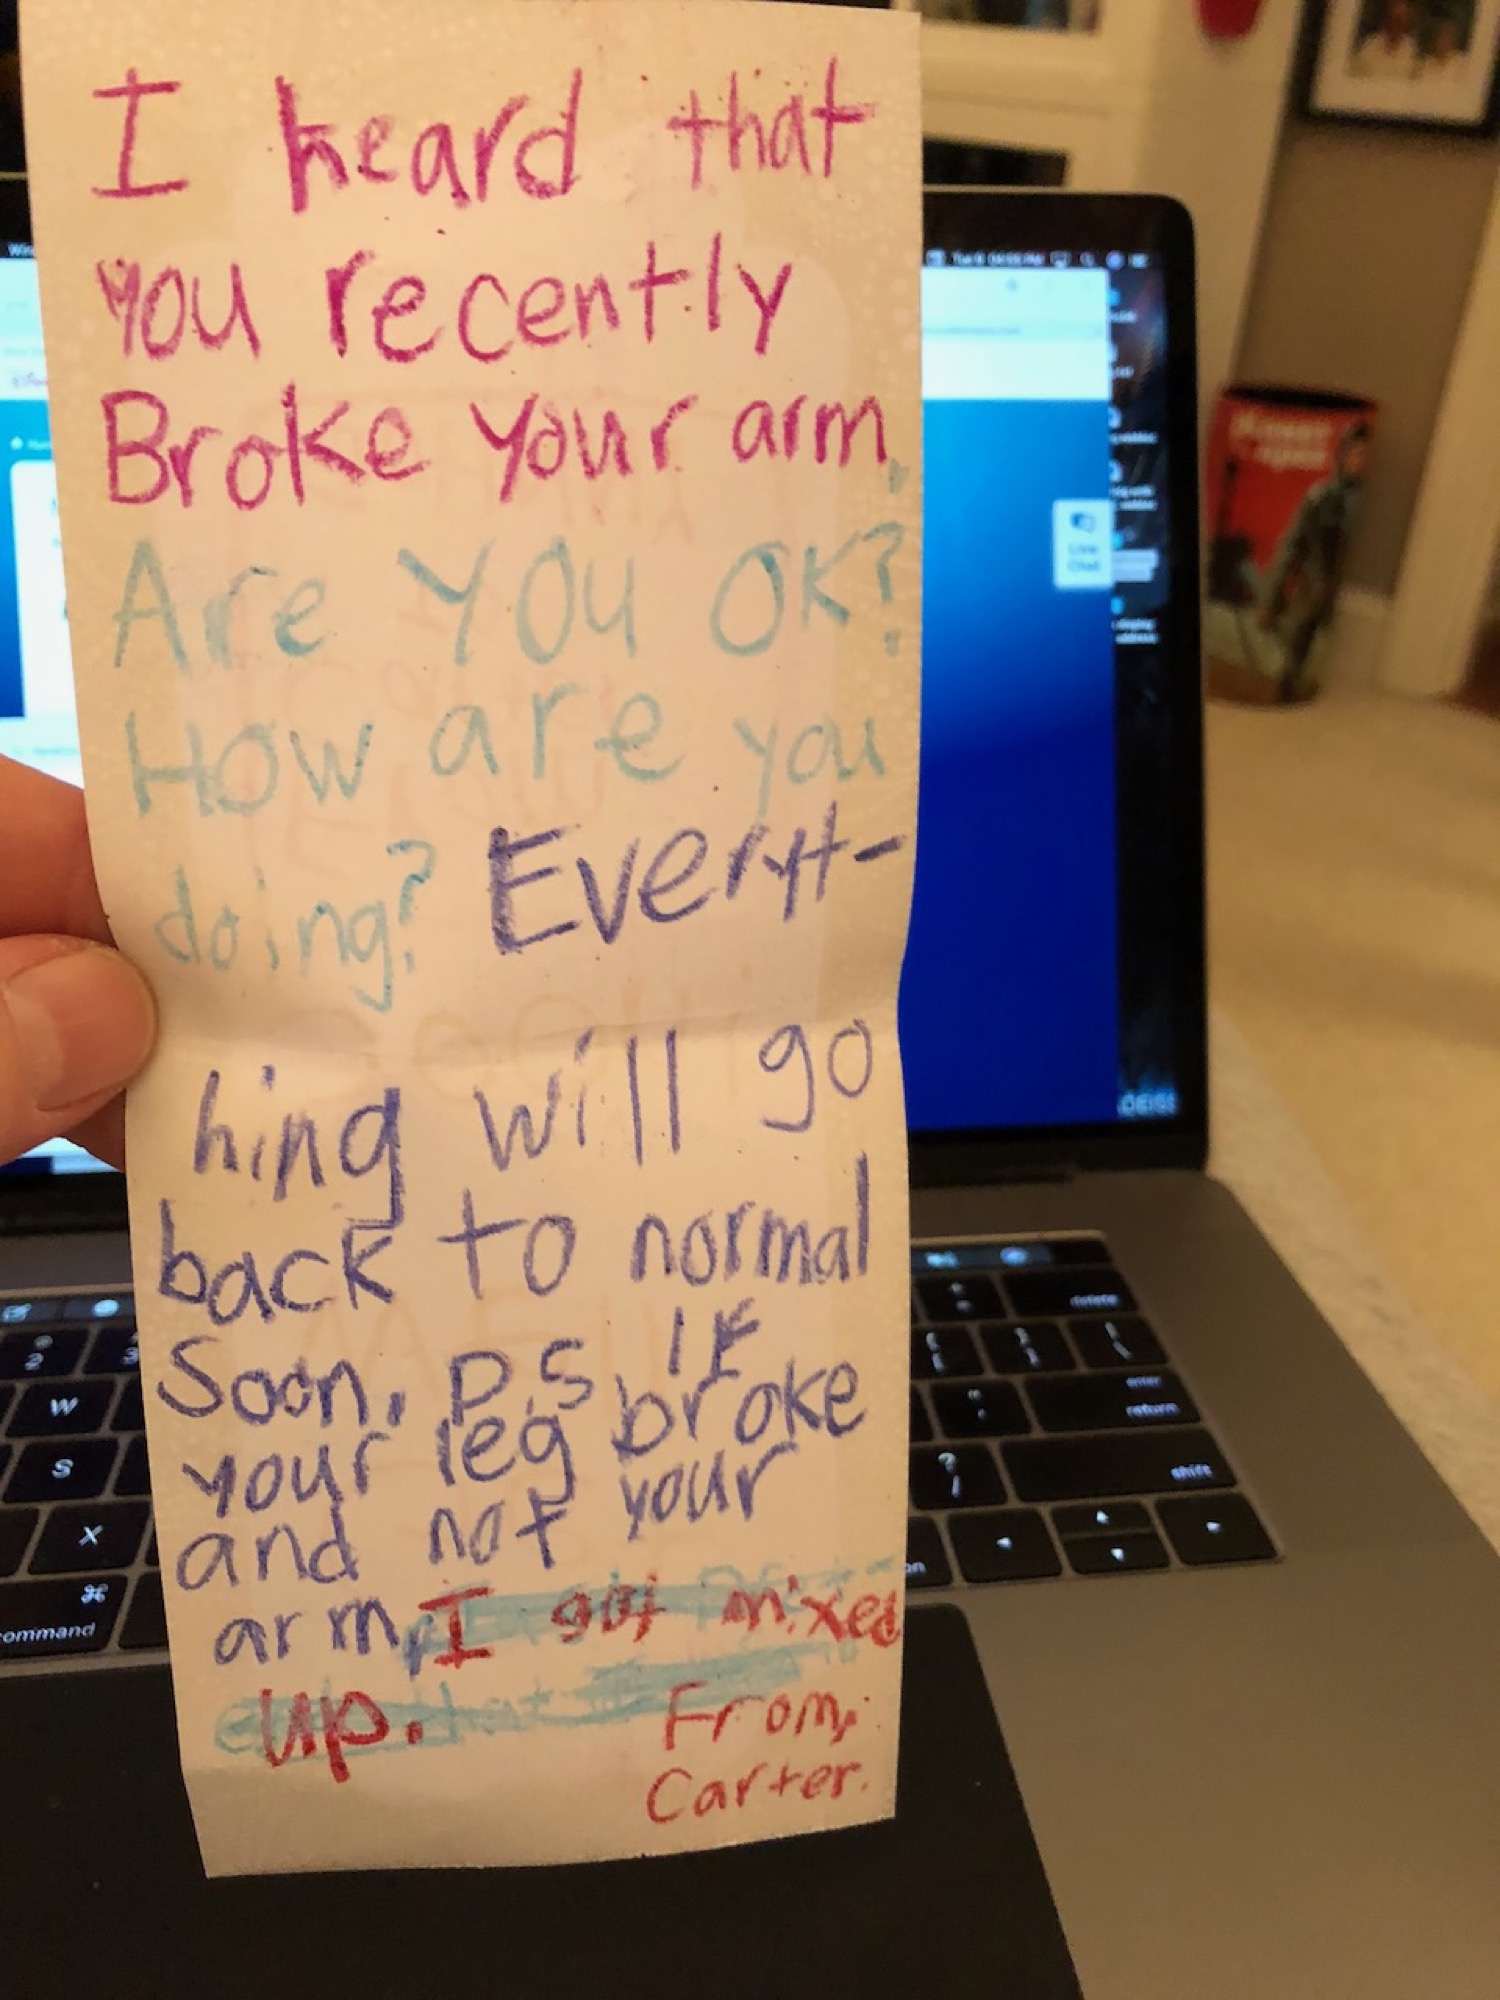 I heard that
you recently
Broke your arm.
Are you ok?
How are you
doing? Everyt-
hing will go
back to normal
Soon. P.S IF
your leg broke
and not your
arm, I got mixed
up.
From,
Carter.
Live
Chat
delete
enter
return
shift
command
2
3
W
S
X
?
/